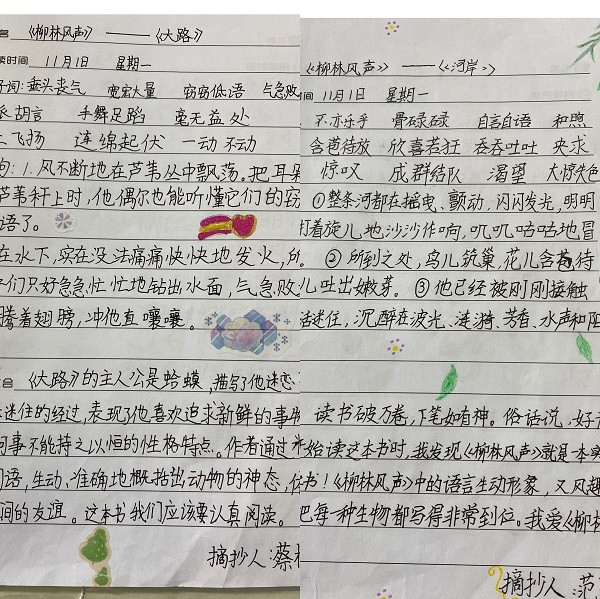 名 《柳林风声》 —— 《大路》
读时间 11月1日 星期一
子词:垂头丧气 宽宏大量 窃窃低语 气急败
胡言 手舞足蹈 毫无益处
飞扬 连绵起伏 一动不动
句:1.风不断地在芦苇丛中飘荡。把耳朵
芦苇秆上时,他偶尔也能听懂它们的窃
语了。
在水下,实在没法痛痛快快地发火,所
子们只好急急忙忙地钻出水面,气急败
腾着翅膀,冲他直嚷嚷。
会 《大路》的主人公是蛤蟆,描写了他迷恋
迷住的经过,表现了他喜欢追求新鲜的事物
何事不能持之以恒的性格特点。作者通过
词语,生动、准确地概括出动物的神态,
间的友谊。这本书我们应该要认真阅读。
摘抄人:蔡
《柳林风声》 ——《河岸》
间 11月1日 星期一
不亦乐乎 骨碌碌 自言自语 和煦
含苞待放 欣喜若狂 吞吞吐吐 央求
惊叹 成群结队 渴望 大惊失色
①整条河都在摇曳、颤动,闪闪发光,明明
打着旋儿地沙沙作响,叽叽咕咕地冒
②所到之处,鸟儿筑巢,花儿含苞待
儿吐出嫩芽。③他已经被刚刚接触
活迷住,沉醉在波光、涟漪、芳香、水声和阳
读书破万卷,下笔如有神。俗话说,好
始读这本书时,我发现《柳林风声》就是本
书!《柳林风声》中的语言生动形象,又风趣
把每一种生物都写得非常到位。我爱《柳林
摘抄人:范